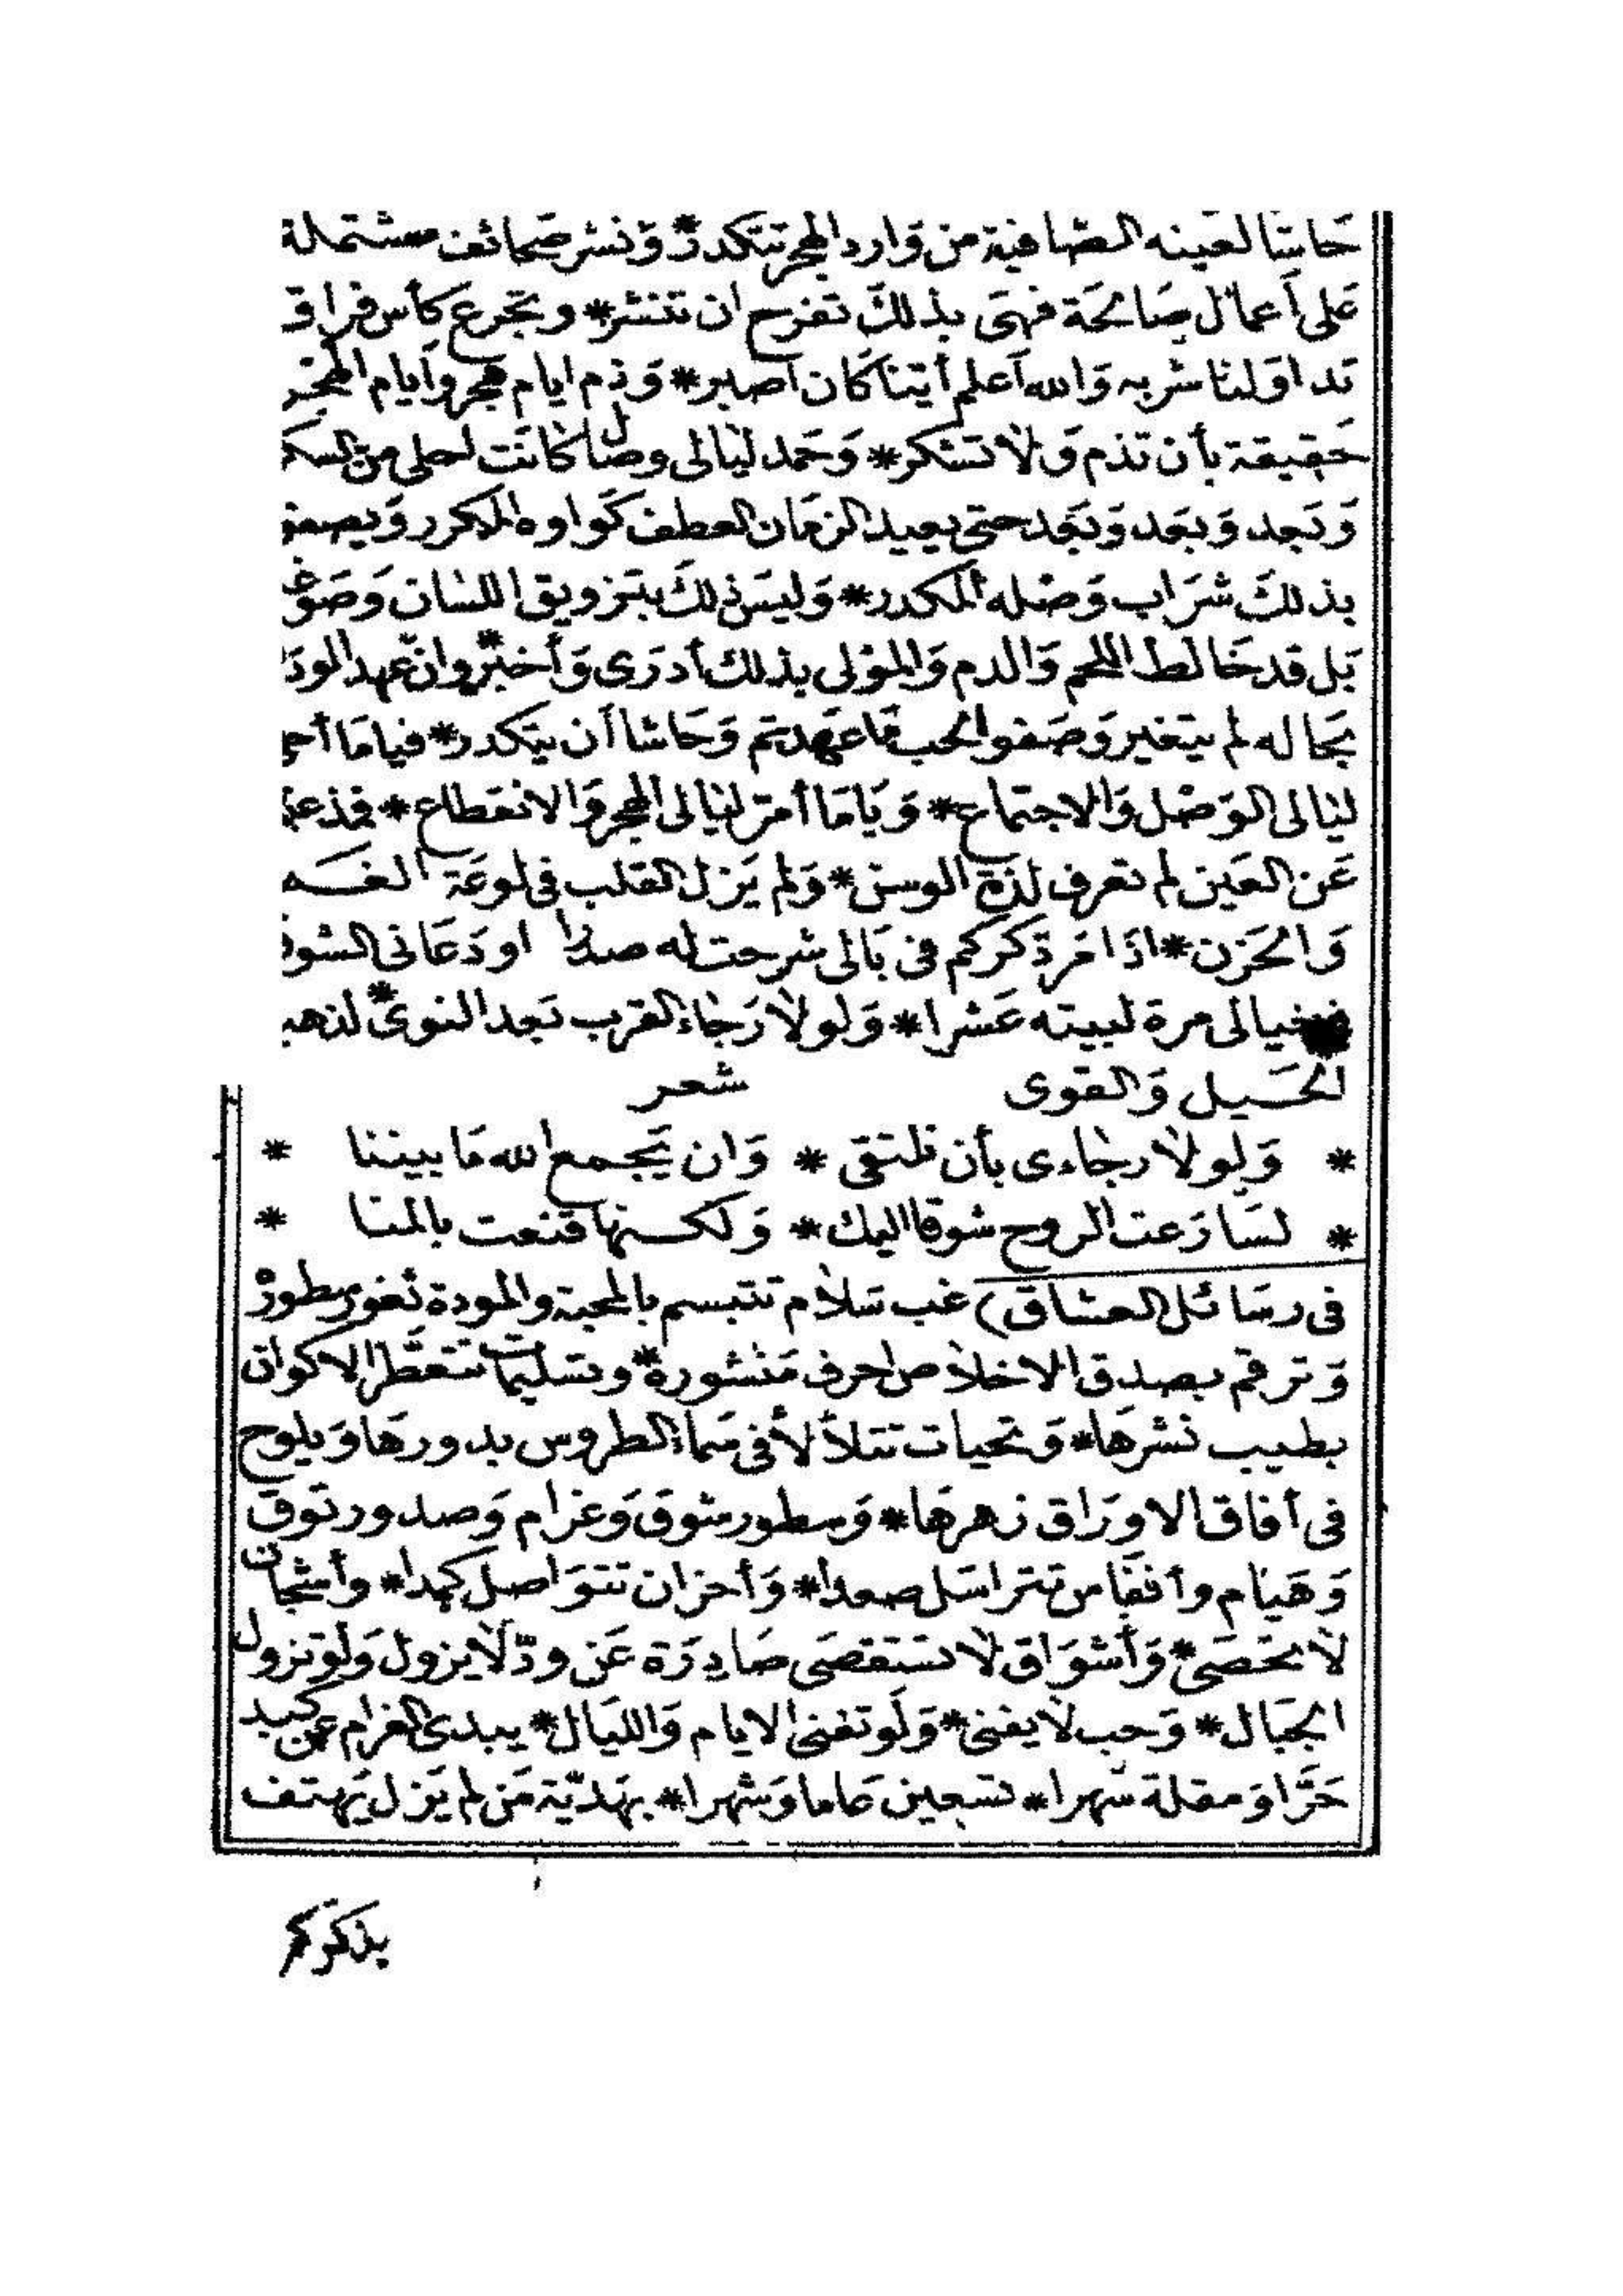 حَاشا لعَينه الصَّافية من وَارد الهجر تتكدر * وَنشر صَحائف مشتملة
عَلى أَعمال صَالحَة فهىَ بذلكَ تفرح ان تنشر * وتجرع كأس فراق
تداوَلنا شربه وَالله أَعلم أيّنا كَان أصبر * وَذم ايام هجر وأيام الهجر
حَقيقة بأن تذم وَلا تشكر * وَحمد ليالى وصل كانَت احلى من السكر
وَنجد وَبعَد وَبعَد حتى يعيد الزمَان العطف المكرر وَيصفو
بذلكَ شرَاب وَصْله المكدر * وَليسَ ذلكَ بتزويق اللسَان وَصَوغه
بَل قد خَالط اللحم وَالدم وَالموْلى بذلك أدرَى وَأخبر * وان عهد الوداد
بحَاله لم يتغير وَصَفو الحب مَا عَهدتم وَحَاشا أن يتكدر * فيامَا أحلى
ليَالى الوَصْل وَالاجتماع * وَيَامَا أمرّ ليَالى الهجر وَالانقطاع * فمذ غبتم
عَن العَين لم تعرف لذة الوسن * وَلم يَزل القلب فى لوعَة
وَالحَزن * اذَا مَر ذكركم فى بَالى شرحت له صدرا او دَعَانى الشوق
خيالى مرة لبيته عَشرا * وَلولا رَجَاء القرب بَعد النوى * لذهب
الحَيل وَالقوى شعر
* وَلولا رجَاءى بأن نلتقى * وَان يَجمع الله مَا بيننا *
* لسَارَعت الروح شوقا اليك * وَلكنها قنعت بالمنا *
فى رسَائل العشاق) غب سَلام تتبسم بالمحبة والمودة ثغور سطوره
وَترقم بصدق الاخلاص احرف مَنشورة * وتسليمات تتعطَّر الاكوان
بطيب نشرهَا * وَتحيات تتلألأ فى سَماء الطروس بدورهَا وَيلوح
فى أفاق الاورَاق زهرهَا * وَسطور شوق وَغرام وَصدور توق
وَهيَام وأنفَاس تتراسَل صعدا * وَأحزان تتوَاصل كمدا * وأشجان
لا تحصَى * وَأشوَاق لا تستقصَى صَادرَة عَن ودّ لا يزول وَلو تزول
الجبَال * وَحب لا يفنى * وَلَو تفنى الايام وَالليَال * يبدى الغرام عن كبد
حَرَّا وَمقلة سهرا * تسعين عاما وَشهرا * بهَديّة مَن لم يَزل يَهتف
بذكركم